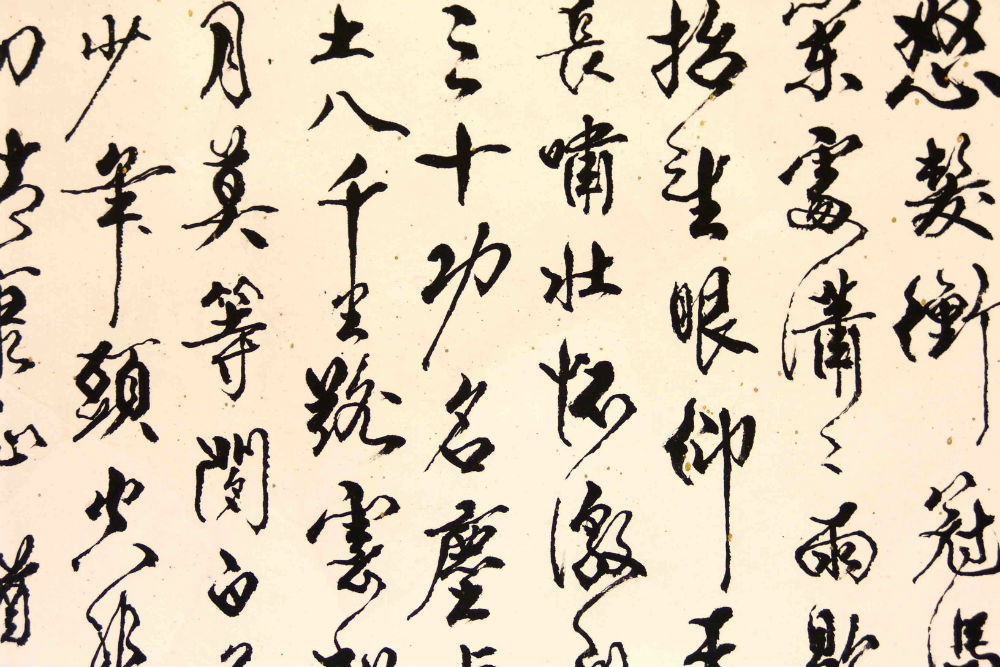 怒髮衝冠憑
處瀟〻雨歇
抬望眼仰
長嘯壯懷激
三十功名塵
土八千里路雲和
月莫等閒白
少年頭空悲
切靖康恥猶